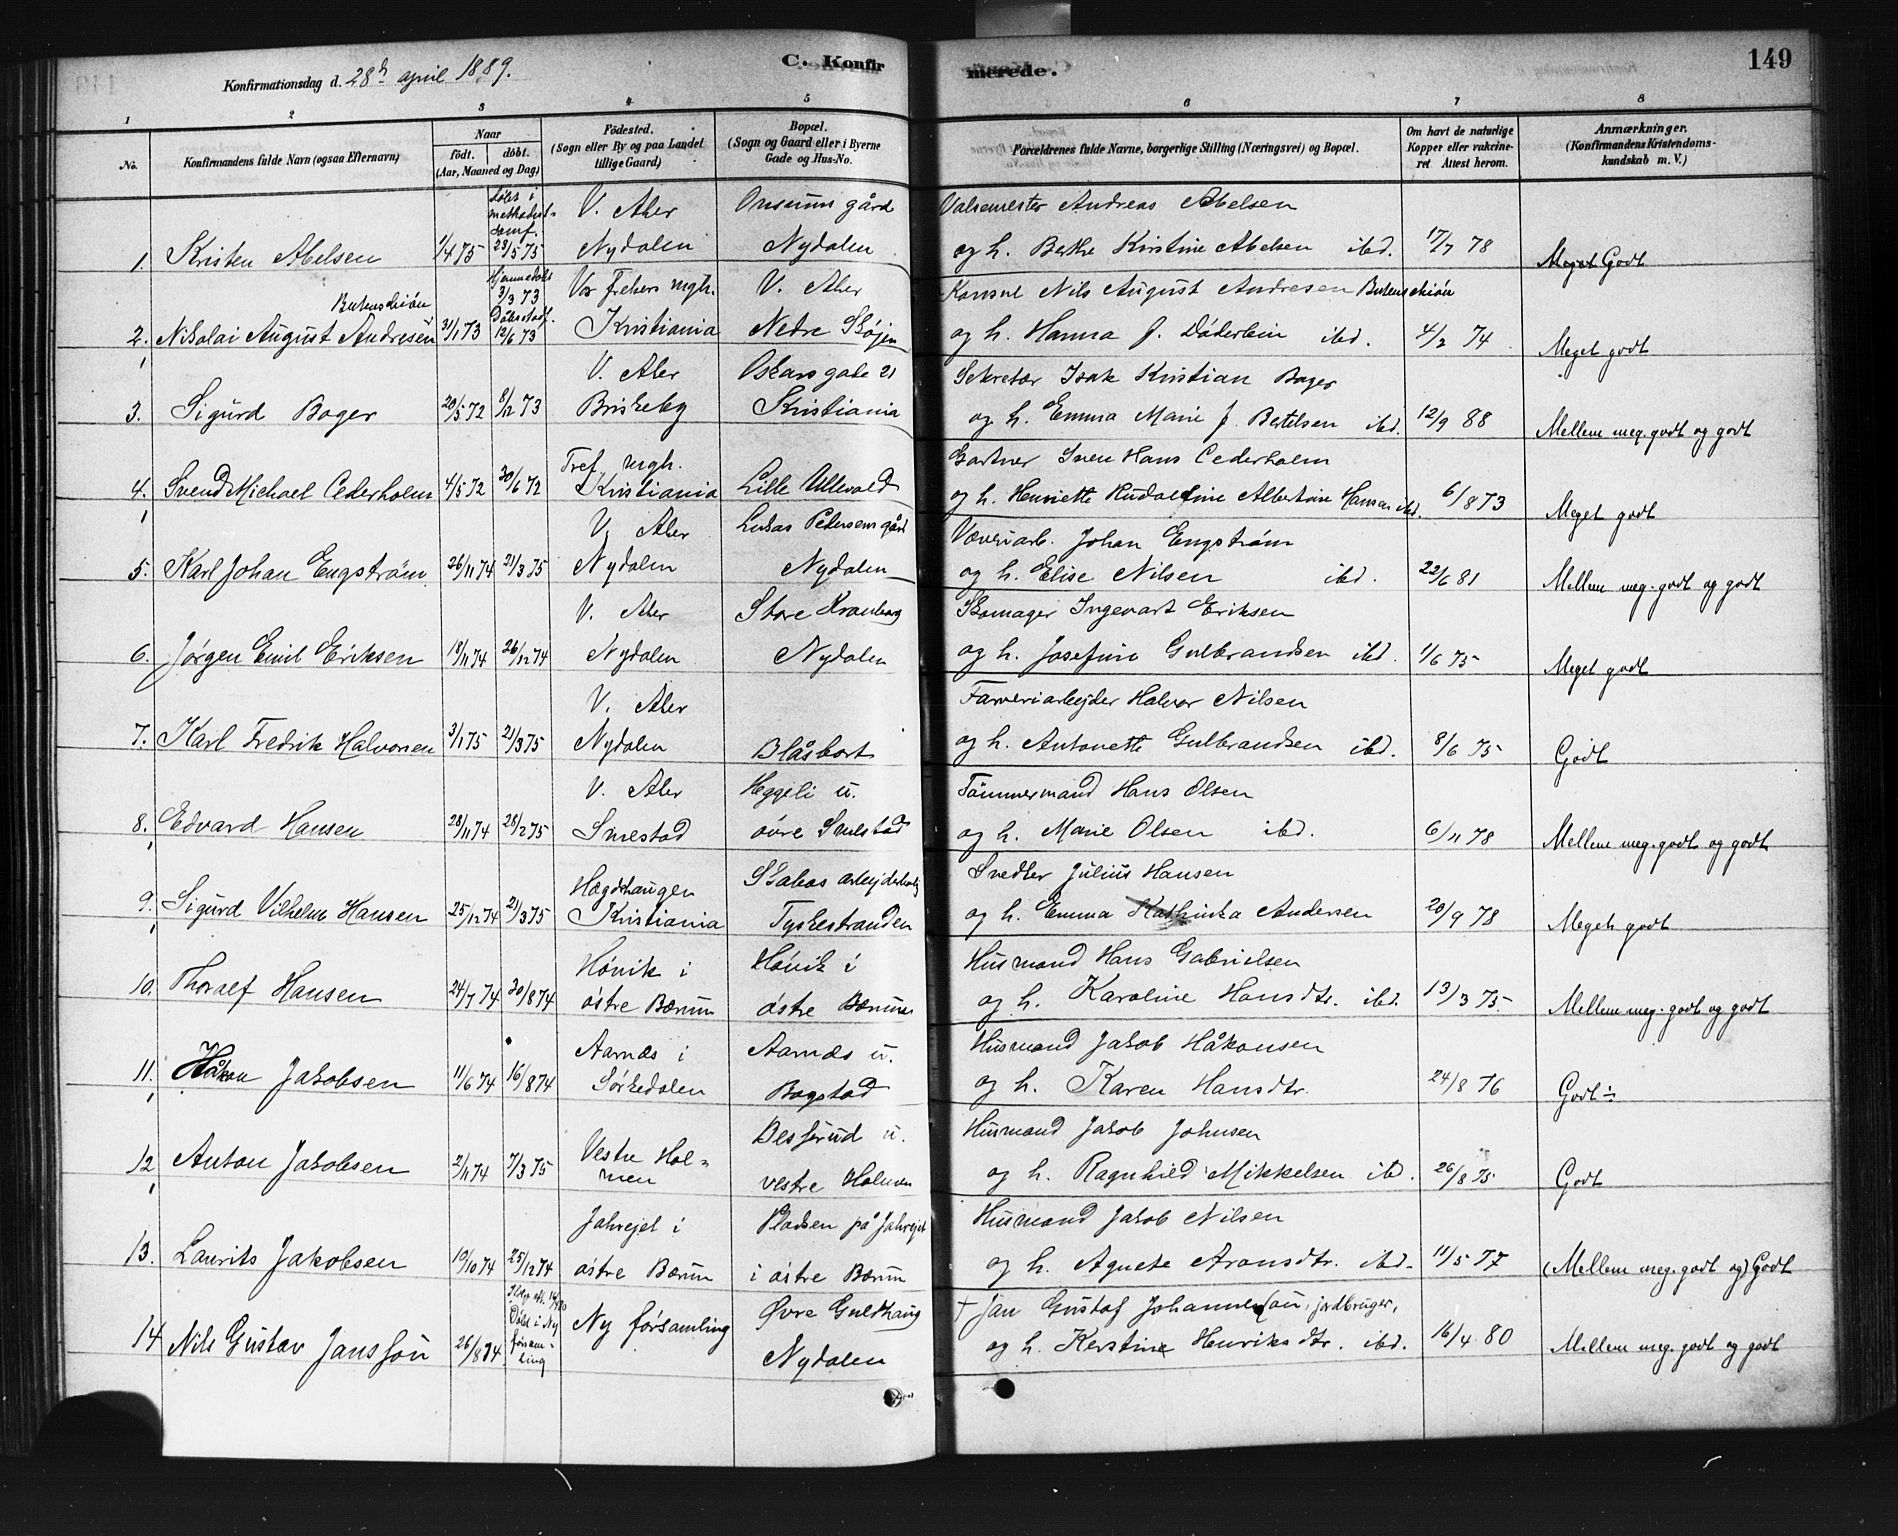 Konfirmationsdag d. 28de april 1889.
C. Konfirmerede.
149
1 2 3 4 5 6 7 8
No.
Konfirmandens fulde Navn (ogsaa Efternavn)
Naar
født. døbt.
(Aar, Maaned og Dag)
Fødested.
(Sogn eller By og paa Landet
tillige Gaard)
Bopæl.
(Sogn og Gaard eller i Byerne
Gade og Hus-No.
Forældrenes fulde Navne, borgerlige Stilling (Næringsvei) og Bopæl.
Om havt de naturlige
Kopper eller vakcine-
ret Attest herom.
Anmærkninger.
(Konfirmandens Kristendoms-
kundskab m. V.)
Døbt i methodist-
V. Aker Onsums gård Valsemester Andreas Abelsen
1. Kristen Abelsen 1/4 75 23/5 75 Nydalen Nydalen og h. Berthe Kirstine Abelsen ibd. 17/7 78 Meget Godt
Hjemmedøbt 3/3 73 Vor Frelsers mgh. V. Aker Konsul Nils August Andresen Butenschiøn
Butenschiøn
2. Nikolai August Andresen 31/1 73 12/6 73 Kristiania Nedre Skøjen og h. Hanna f. Døderlein ibd. 4/2 74 Meget godt
V. Aker Oskarsgade 21 Sekretær Isak Kristian Bager
3. Sigurd Bager 20/5 72 8/12 73 Briskeby Kristiania og h. Emma Marie f. Bertelsen ibd. 12/9 88 Mellem meg. godt og godt
Tref. mgh. Gartner Sven Hans Cederholm
4. Svend Michael Cederholm 4/5 72 30/6 72 Kristiania Lille Ullevold og h. Henriette Rudolfine Albertine Hansen ibd. 6/8 73 Meget godt
V. Aker Lukas Petersens gård Væveriarb. Johan Engstrøm
5. Karl Johan Engstrøm 26/11 74 21/3 75 Nydalen Nydalen og h. Elise Nilsen ibd. 22/6 81 Mellem meg. godt og godt
V. Aker Store Kranberg Skomager Ingevart Eriksen
6. Jørgen Emil Eriksen 18/11 74 26/12 74 Nydalen Nydalen og h. Josefine Gulbrandsen ibd. 1/6 75 Meget godt
V. Aker Farveriarbejder Halvor Nilsen
7. Karl Fredrik Halvorsen 3/1 75 21/3 75 Nydalen Blåsbort og h. Antonette Gulbrandsen ibd. 8/6 75 Godt
V. Aker Heggeli u. Tømmermand Hans Olsen
8. Edvard Hansen 28/11 74 28/2 75 Smestad øvre Smestad og h. Marie Olsen ibd. 6/11 78 Mellem meg. godt og godt
Hægdehaugen Skabos arbejderbolig Snedker Julius Hansen
9. Sigurd Vilhelm Hansen 25/12 74 21/3 75 Kristiania Tyskestranden og h. Emma Kathinka Andersen 20/9 78 Meget godt
Høvik i Høvik i Husmand Hans Gabrielsen
10. Thoralf Hansen 24/7 74 30/8 74 østre Bærum østre Bærum og h. Karoline Hansdtr. ibd. 13/3 75. Mellem meg. godt og godt
Aarnæs i Aarnæs u. Husmand Jakob Håkonsen
11. Håkon Jakobsen 11/6 74 16/8 74 Sørkedalen Bogstad og h. Karen Hansdtr. 24/8 76 Godt ÷
Besserud u. Husmand Jakob Johnsen
12 Anton Jakobsen 2/11 74 7/3 75 Vestre Hol-
men vestre Holmen og h. Ragnhild Mikkelsen ibd. 26/8 75 Godt
Jahrejet i Pladsen på Jahrejet Husmand Jakob Nilsen
13. Laurits Jakobsen 19/10 74 25/12 74 østre Bærum i østre Bærum og h. Agnete Aronsdtr. ibd. 11/5 77 (Mellem meg. godt og) Godt
Døbt i Ny forsam-
ling
Øvre Guldhaug † Jan Gustaf Johannesson, jordbruger,
14 Nils Gustav Jansson 26/8 74 Ny forsamling Nydalen og h. Kerstine Henriksdtr. ibd. 16/4 80 Mellem meg. godt og godt